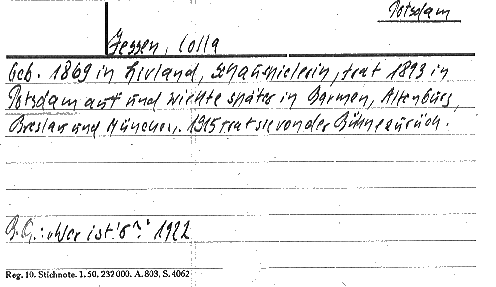 Potsdam
Jessen, Colla
Geb. 1869 in Livland, Schauspielerin, trat 1893 in
Potsdam auf und wirkte später in Barmen, Altenburg,
Breslau und München. 1915 trat sie von der Bühne zurück.
B.Q.: "Wer ist's?" 1922
Reg. 10. Stichnote. 1. 50, 232000. A. 803, S. 4062